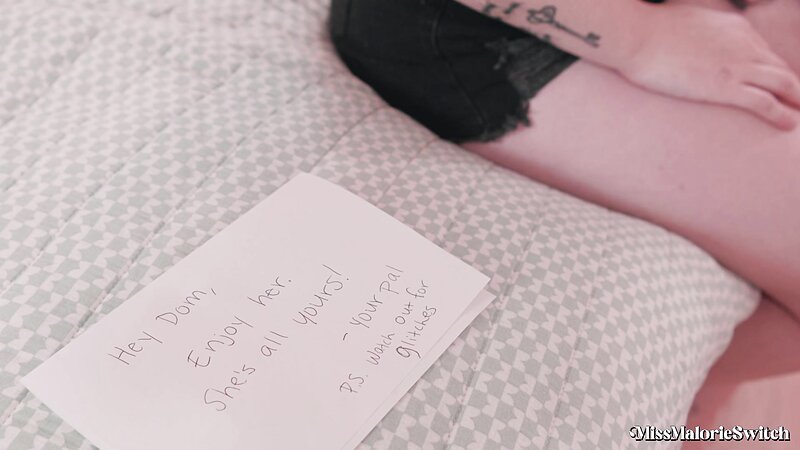 Hey Dom,
Enjoy her.
She's all yours!
- Your pal
P.S. Watch out for
glitches
MissMalorieSwitch